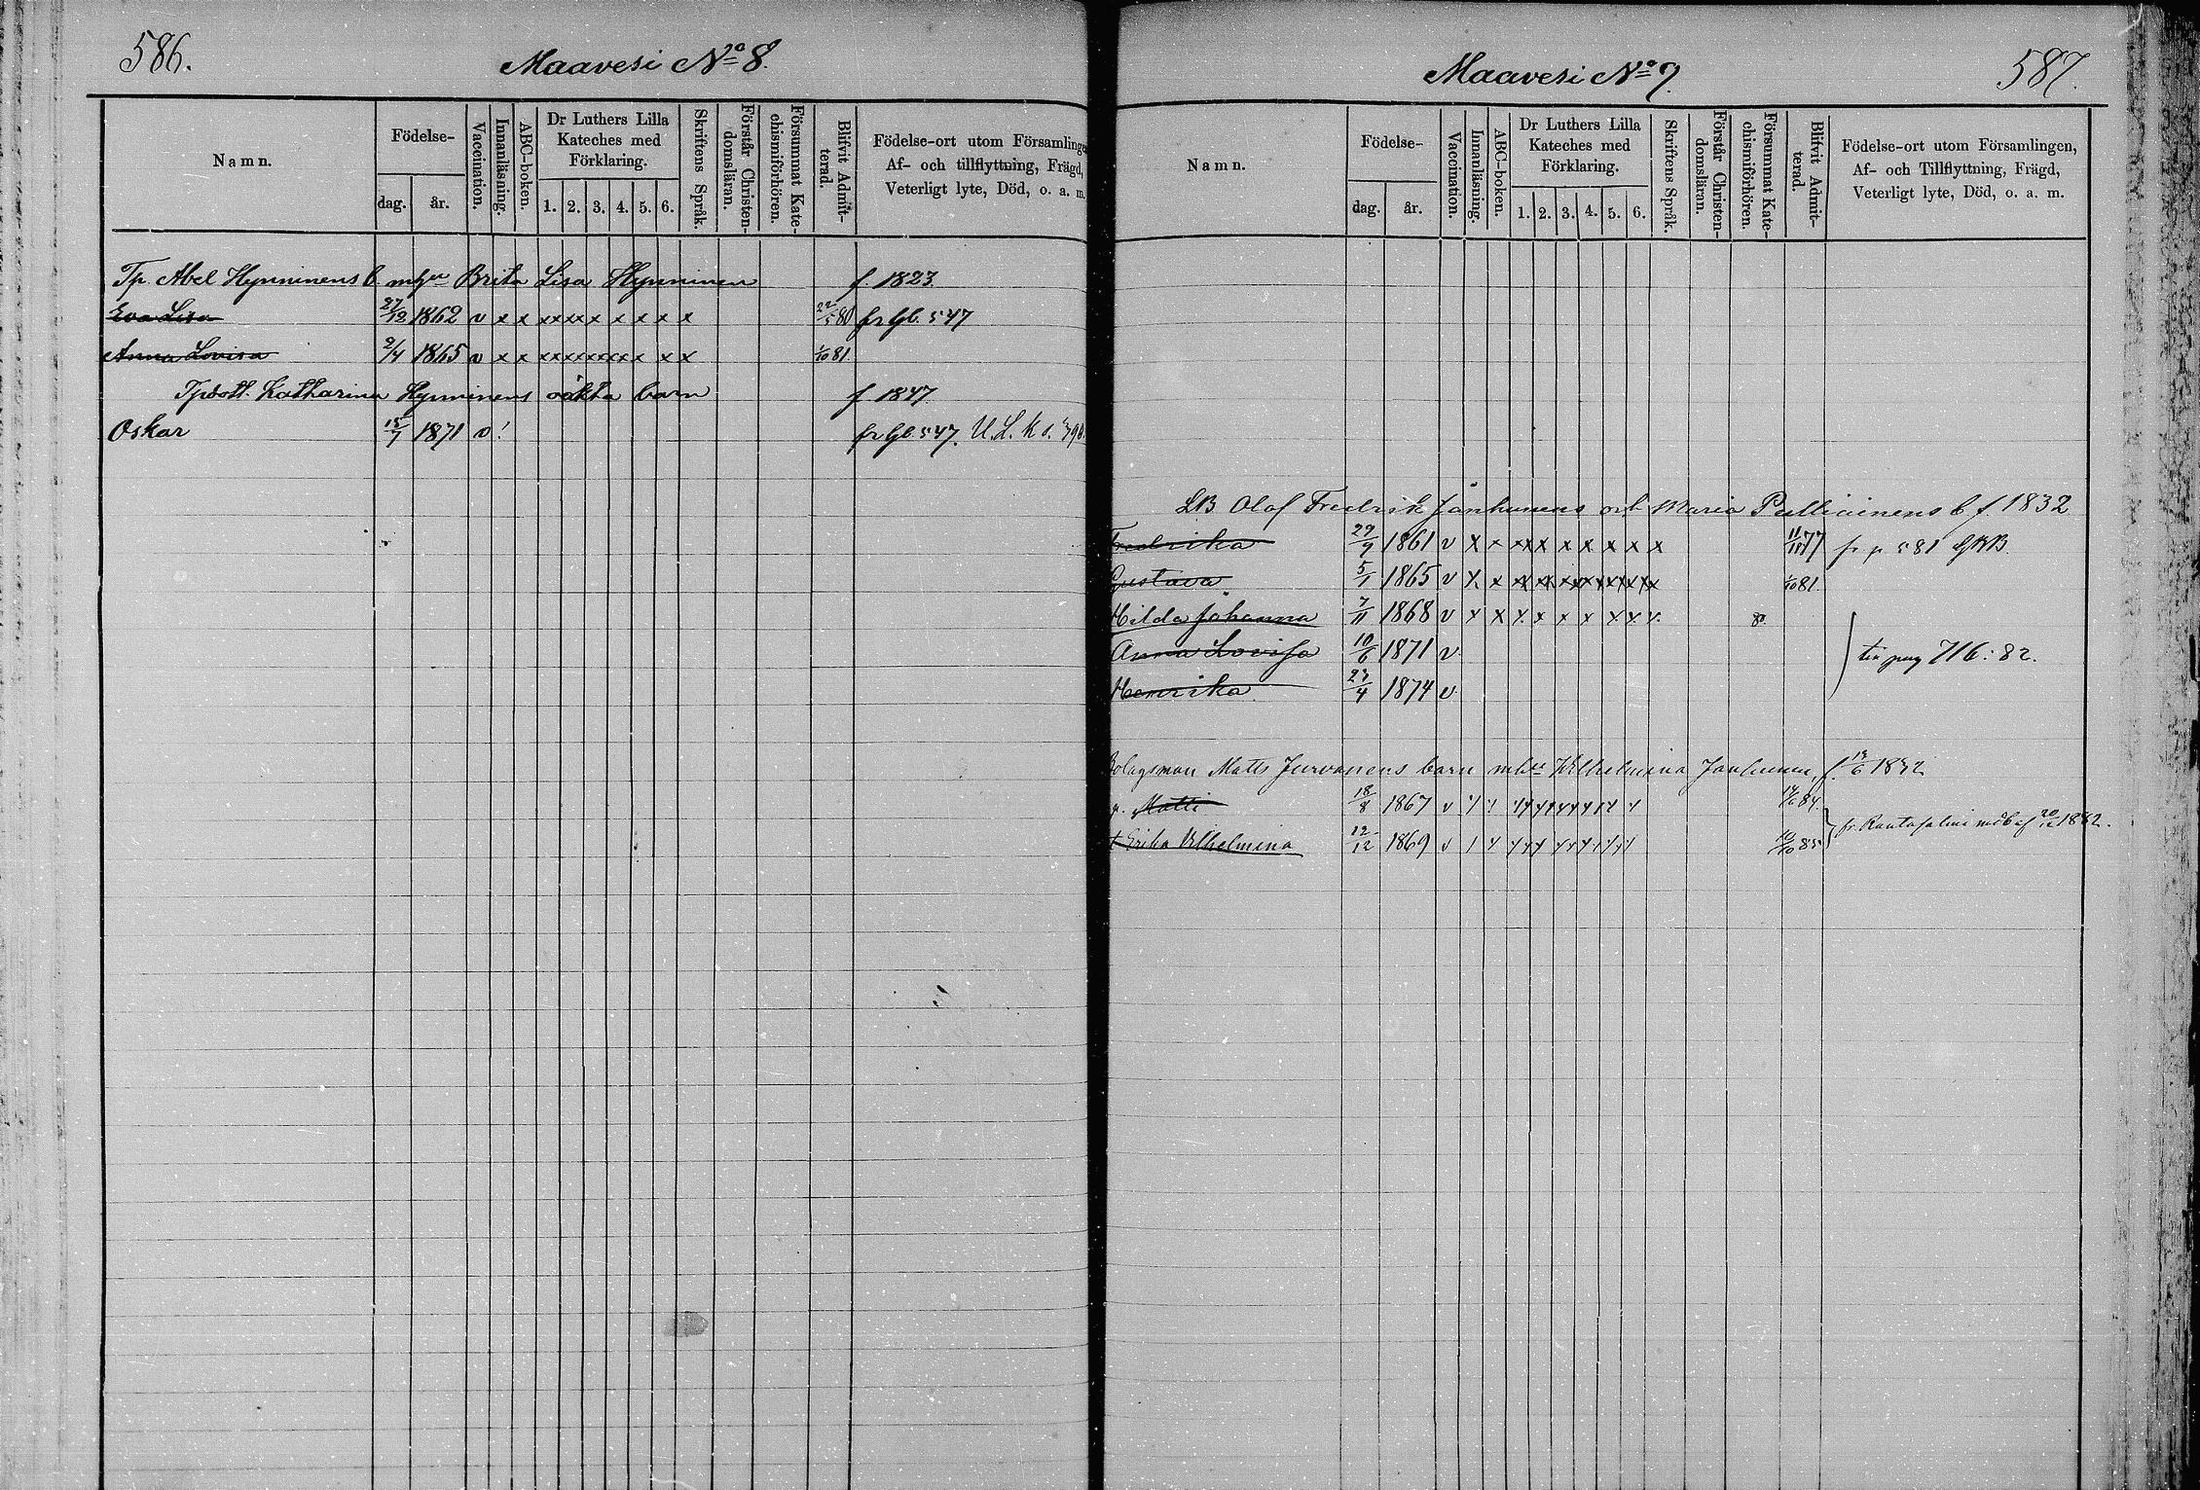 586.
Maavesi No 8.
Namn.
Födelse-
dag.
år.
Vaccination.
Innanläsning.
ABC-boken.
Dr Luthers Lilla
Kateches med
Förklaring.
1. 2. 3. 4. 5. 6.
Skriftens Språk.
Förstår Christen-
domsläran.
Försummat Kate-
chismiförhören.
Blifvit Admit-
terad.
Födelse-ort utom Församlingen
Af- och tillflyttning, Frägd,
Veterligt lyte, Död, o. a. m.
Tp. Abel Hynninens b. Brita Lisa Hynninen f. 1823
Eva Lisa 27/12 1862 v x x x x x x x x x x x 22/5 80 fr 547
Anna Lovisa 2/4 1865 v x x x x x x x x x x x x 1/10 81
Katharina Hynninens oäkta barn f 1847
Oskar 15/7 1871 v! fr 547. U.L.K.
587.
Maavesi No 9
Namn.
Födelse-
dag.
år.
Vaccination.
Innanläsning.
ABC-boken.
Dr Luthers Lilla
Kateches med
Förklaring.
1. 2. 3. 4. 5. 6.
Skriftens Språk.
Förstår Christen-
domsläran.
Försummat Kate-
chismiförhören.
Blifvit Admit-
terad.
Födelse-ort utom Församlingen,
Af- och Tillflyttning, Frägd,
Veterligt lyte, Död, o. a. m.
LB Olof Fredrik Jänhunens och Maria Pulliainens b f. 1832
Fredrika 29/9 1861 v x x x x x x x x x x 11/11 77 fr p 581
Gustava 5/1 1865 v x x x x x x x x x x x x 1/10 81.
Hilda Johanna 7/11 1868 v x x x x x x x x x 80
Anna Lovisa 10/6 1871 v
till pag 716: 82.
Henrika 23/4 1874 v
Bolagsman Matts Jurvanens barn Wilhelmina Janhunen, f. 1832
Matti 18/8 1867 v 84.
Erika Vilhelmina 12/12 1869 v 10/10 85
fr. Rantasalmi 20/12 1882.